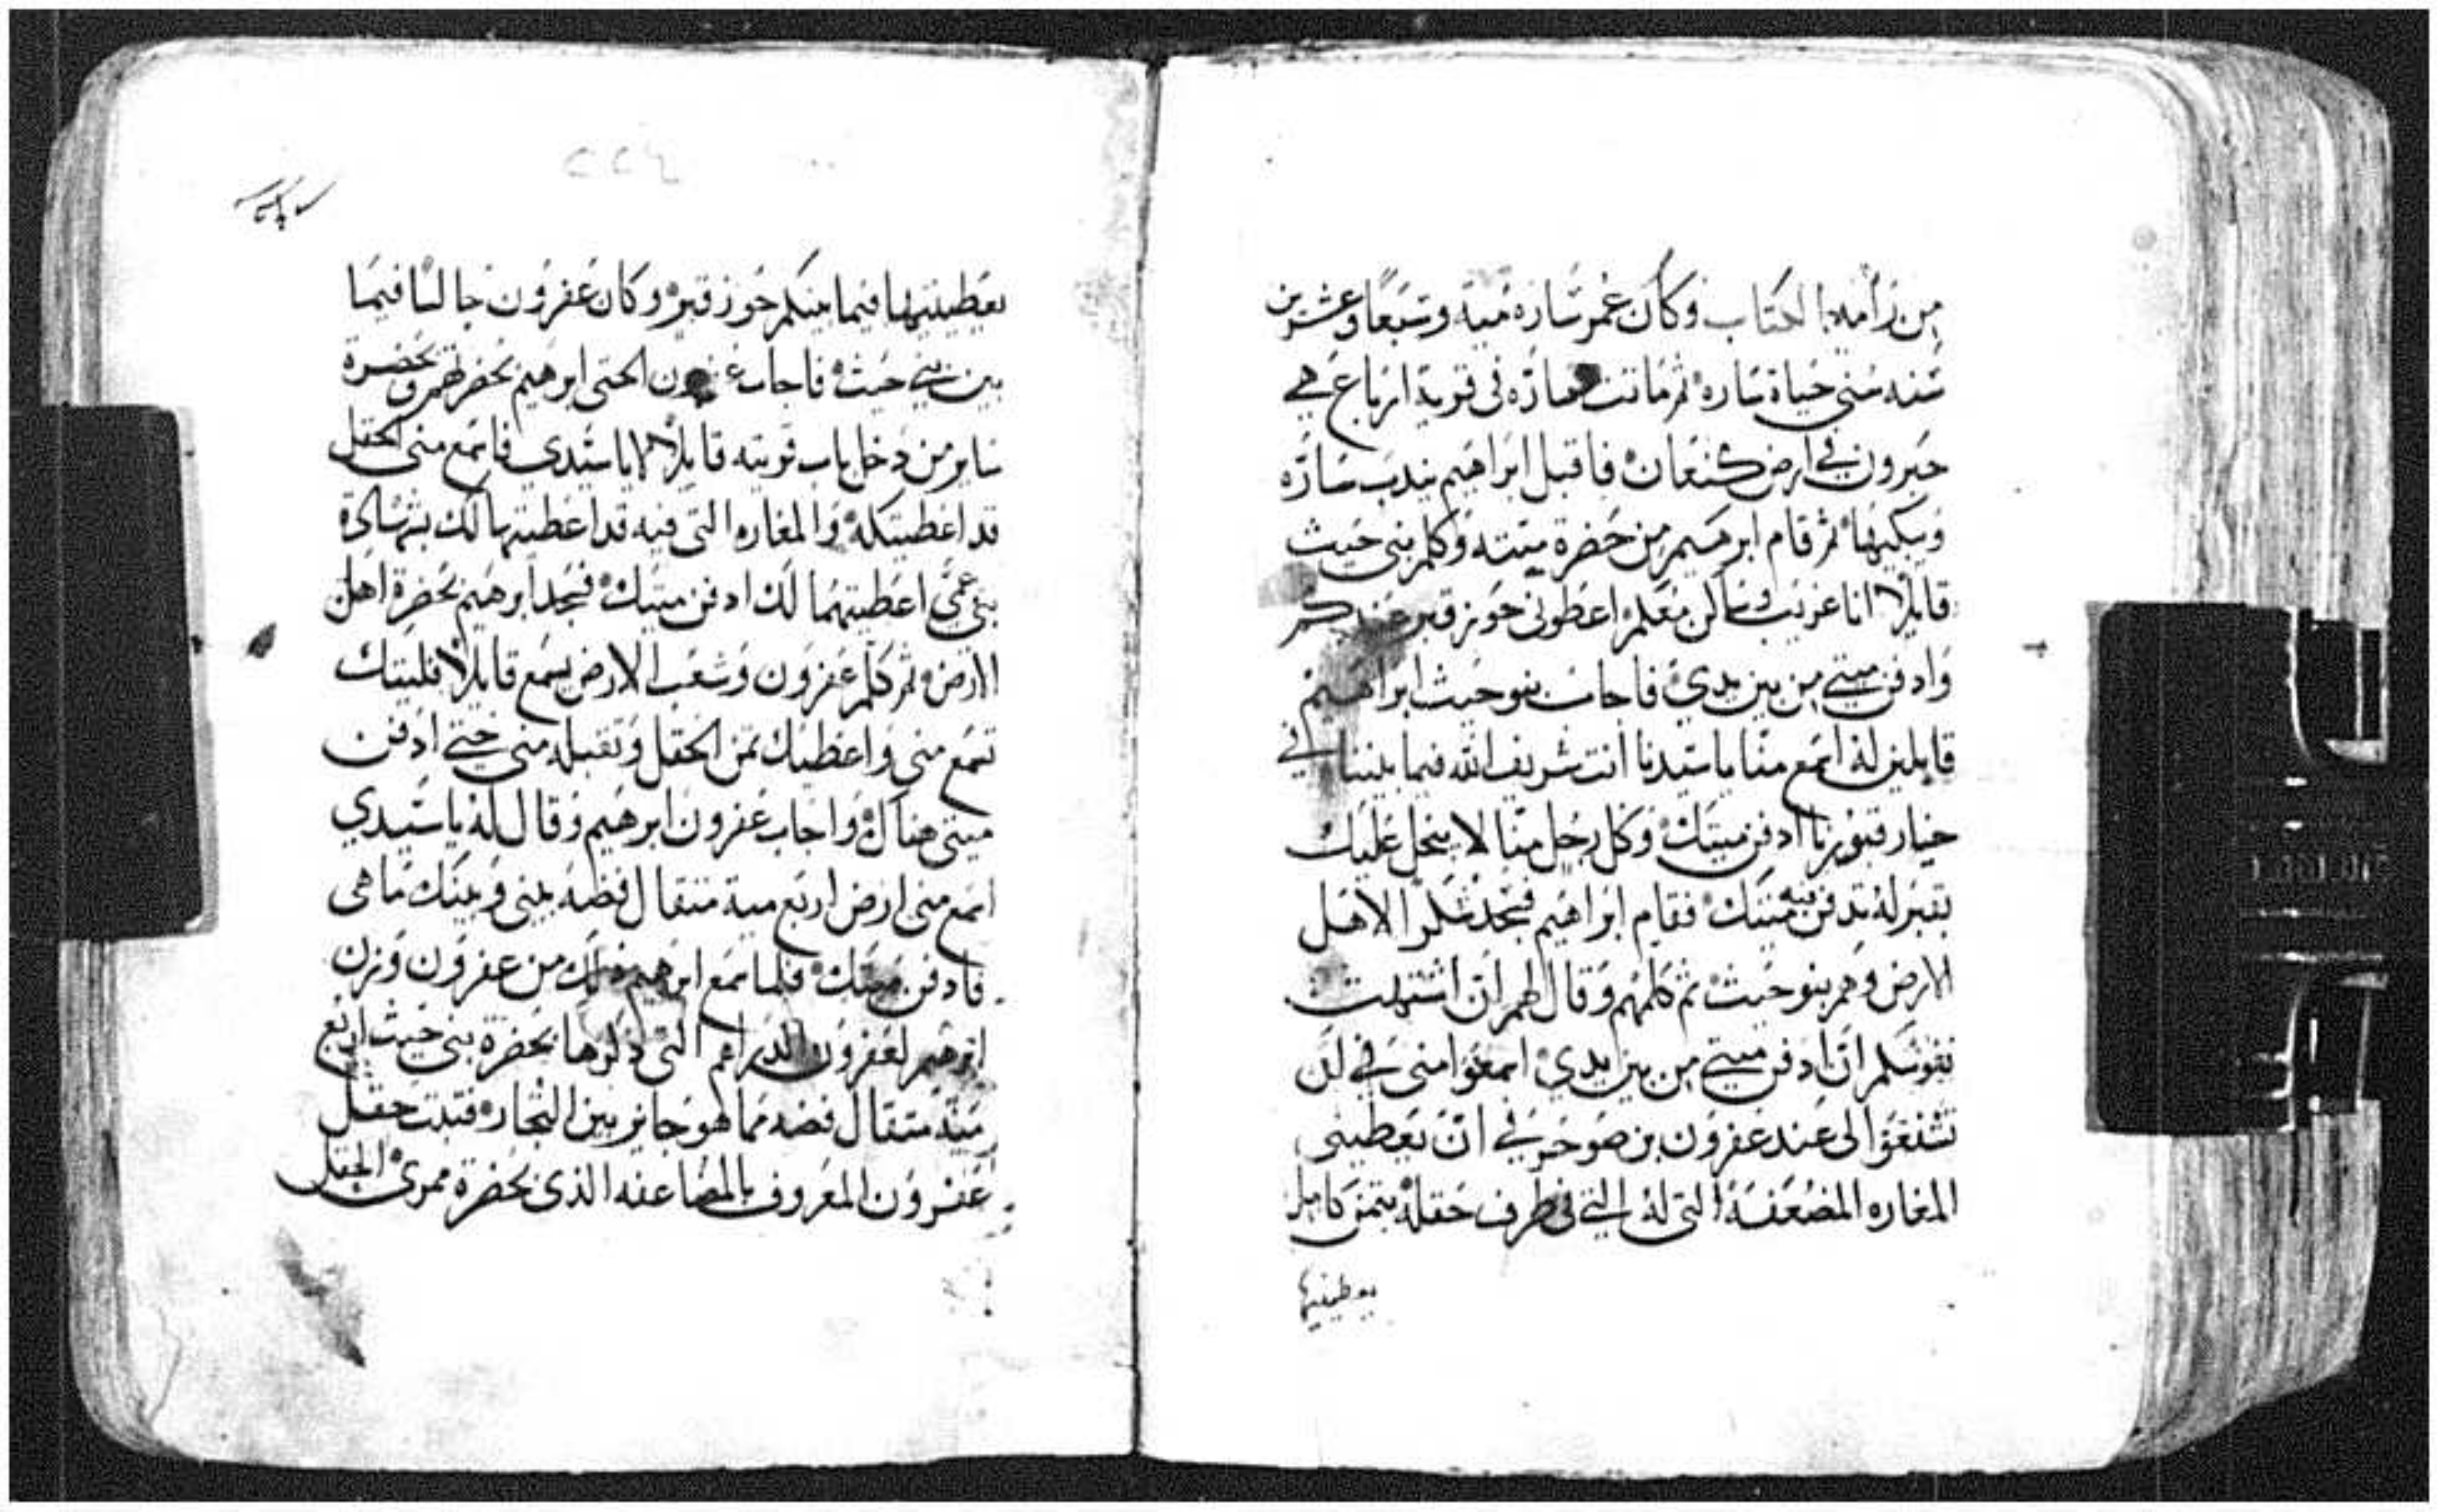 من زامله الكتاب وكان عمر ساره مية وسبعا وعشرين
سنه سني حياة ساره ثم ماتت ساره في قرية ارباع هي
حبرون في ارض كنعان فاقبل ابراهيم يندب ساره
ويبكيها ثم قام ابرهيم من حضرة ميته وكلم بني حيث
قايلا انا غريب وساكن معكم اعطوني حوز قبر عندكم
وادفن ميتي من بين يدي فاجاب بنو حيث ابراهيم
قايلين له اسمع منا يا سيدنا انت شريف الله فيما بيننا في
خيار قبورنا ادفن ميتك وكل رجل منا لا يبخل عليك
بقبر له تدفن فيه ميتك فقام ابراهيم فسجد شكرا لاهل
الارض وهم بنو حيث ثم كلمهم وقال لهم ان اشتهت
نفوسكم ان ادفن ميتي من بين يدي اسمعوا مني في ان
تشفعوا لي عند عفرون بن صوحر في ان يعطيني
المغاره المضعفة التي له التي في طرف حقله بثمن كامل
يعطينيها
يعطينيها فيما بينكم حوز قبر وكان عفرون جالسا فيما
بين بني حيث فاجاب عفرون الحتي ابرهيم بحضرتهم وبحضرة
ساير من دخل باب قريته قايلا لا يا سيدي فاسمع مني الحقل
قد اعطيتكه والمغاره التي فيه قد اعطيتها لك بمشاهدة
بني عمي اعطيتهما لك ادفن ميتك فسجد ابرهيم بحضرة اهل
الارض ثم كلم عفرون وشعب الارض يسمع قايلا فليتك
تسمع مني واعطيك ثمن الحقل وتقبله مني حتى ادفن
ميتي هناك واجاب عفرون ابرهيم وقال له يا سيدي
اسمع مني ارض اربع مية مثقال فضه بيني وبينك ما هي
فادفن ميتك فلما سمع ابرهيم ذلك من عفرون وزن
ابرهيم لعفرون الدراهم التي ذكرها بحضرة بني حيث اربع
مية مثقال فضه مما هو جايز بين التجار فثبت حقل
عفرون المعروف بالمضاعفه الذي بحضرة ممري الحقل